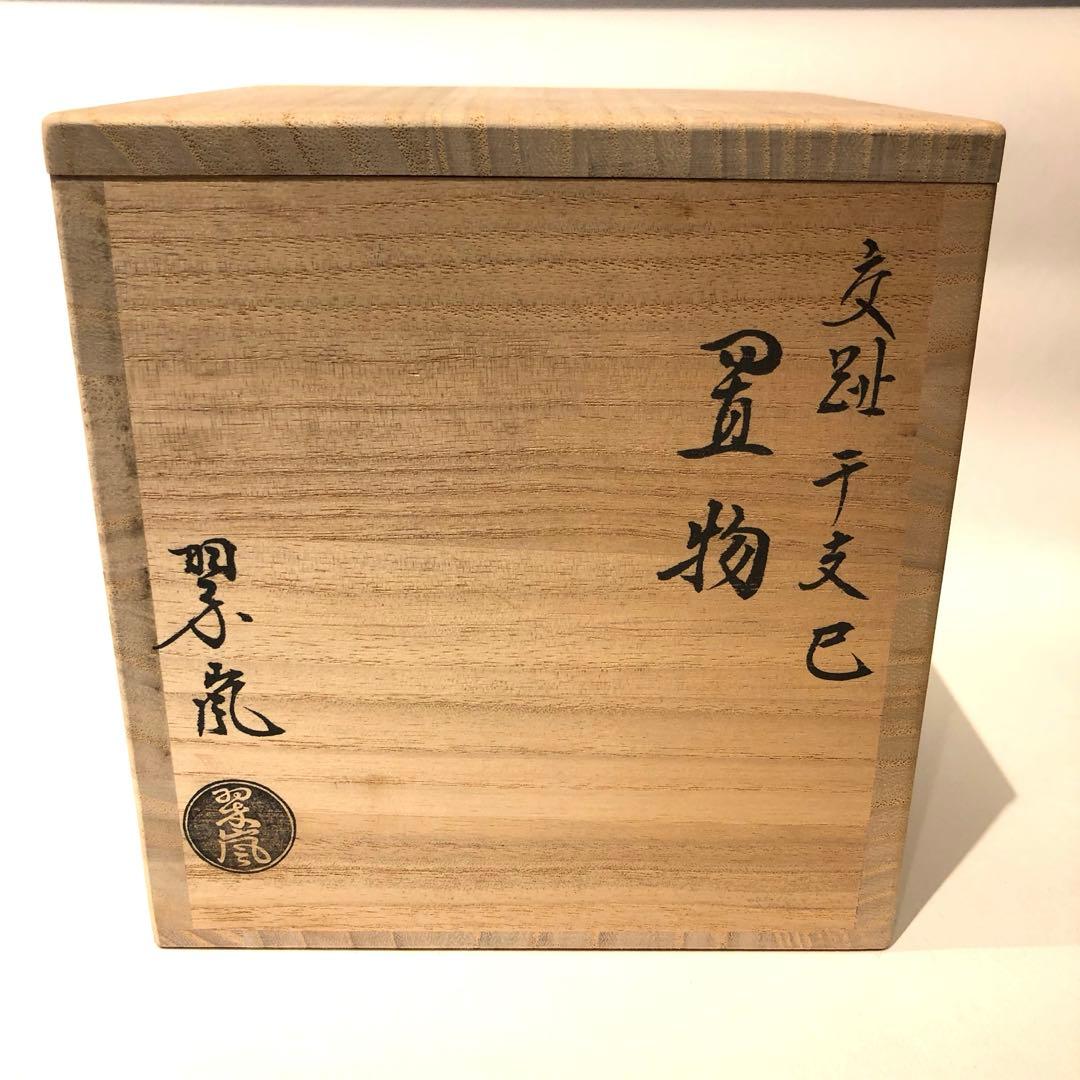 交趾干支巳
置物
翠嵐
翠嵐